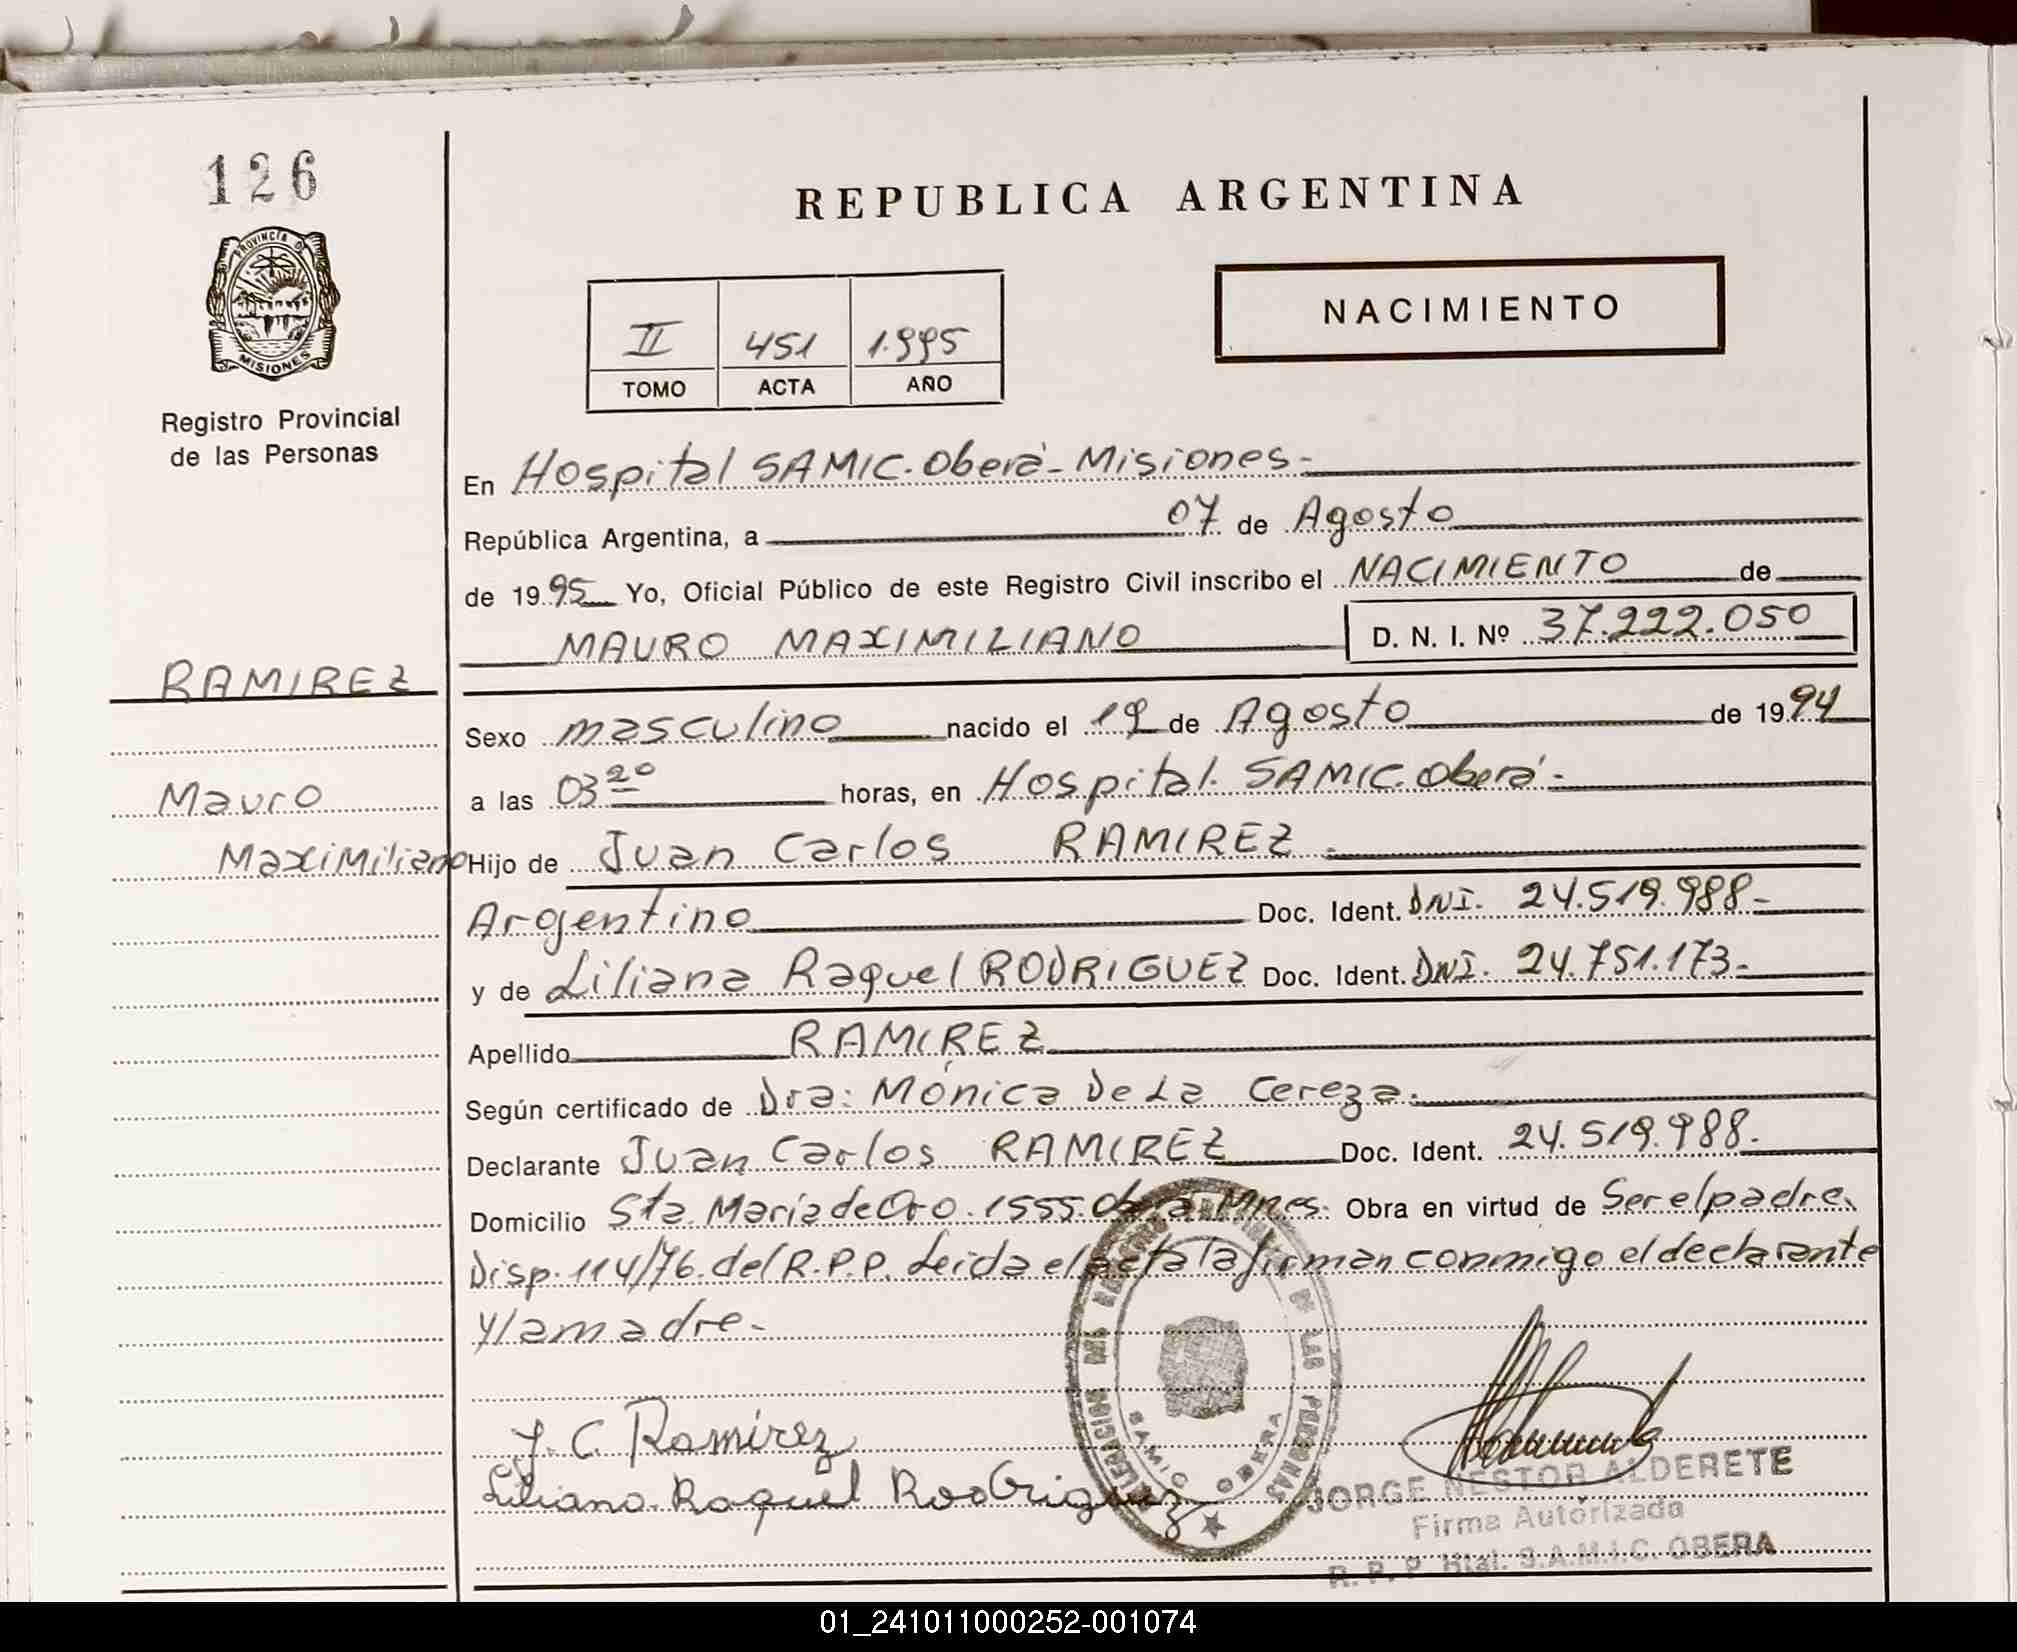 126
REPUBLICA ARGENTINA
PROVINCIA D
MISIONES
NACIMIENTO
II 451 1.995
TOMO ACTA AÑO
Registro Provincial
de las Personas
En Hospital SAMIC. Oberá - Misiones -
República Argentina, a 07 de Agosto
de 1995 Yo, Oficial Público de este Registro Civil inscribo el NACIMIENTO de
MAURO MAXIMILIANO D. N. I. Nº 37.222.050
RAMIREZ
Sexo masculino nacido el 19 de Agosto de 1994
Mauro
a las 03 20 horas, en Hospital. SAMIC. Oberá -
Maximiliano
Hijo de Juan Carlos RAMIREZ.
Argentino Doc. Ident. DNI. 24.519.988-
y de Liliana Raquel RODRIGUEZ Doc. Ident. DNI. 24.751.173-
Apellido RAMIREZ
Según certificado de Dra: Mónica De La Cereza.
Declarante Juan Carlos RAMIREZ Doc. Ident. 24.519.988.
Domicilio Sta. María de Oro. 1555. Oberá Mnes. Obra en virtud de Ser el padre.
Disp. 114/76. del R.P.P. Leida el acta la firman conmigo el declarante
y la madre -
J. C. Ramírez
Liliana Raquel Rodriguez
DE LAS PERSONAS
SAMIC OBERA
JORGE NESTOR ALDERETE
Firma Autorizada
R. P. P. Htal. S.A.M.I.C. OBERA
01_241011000252-001074